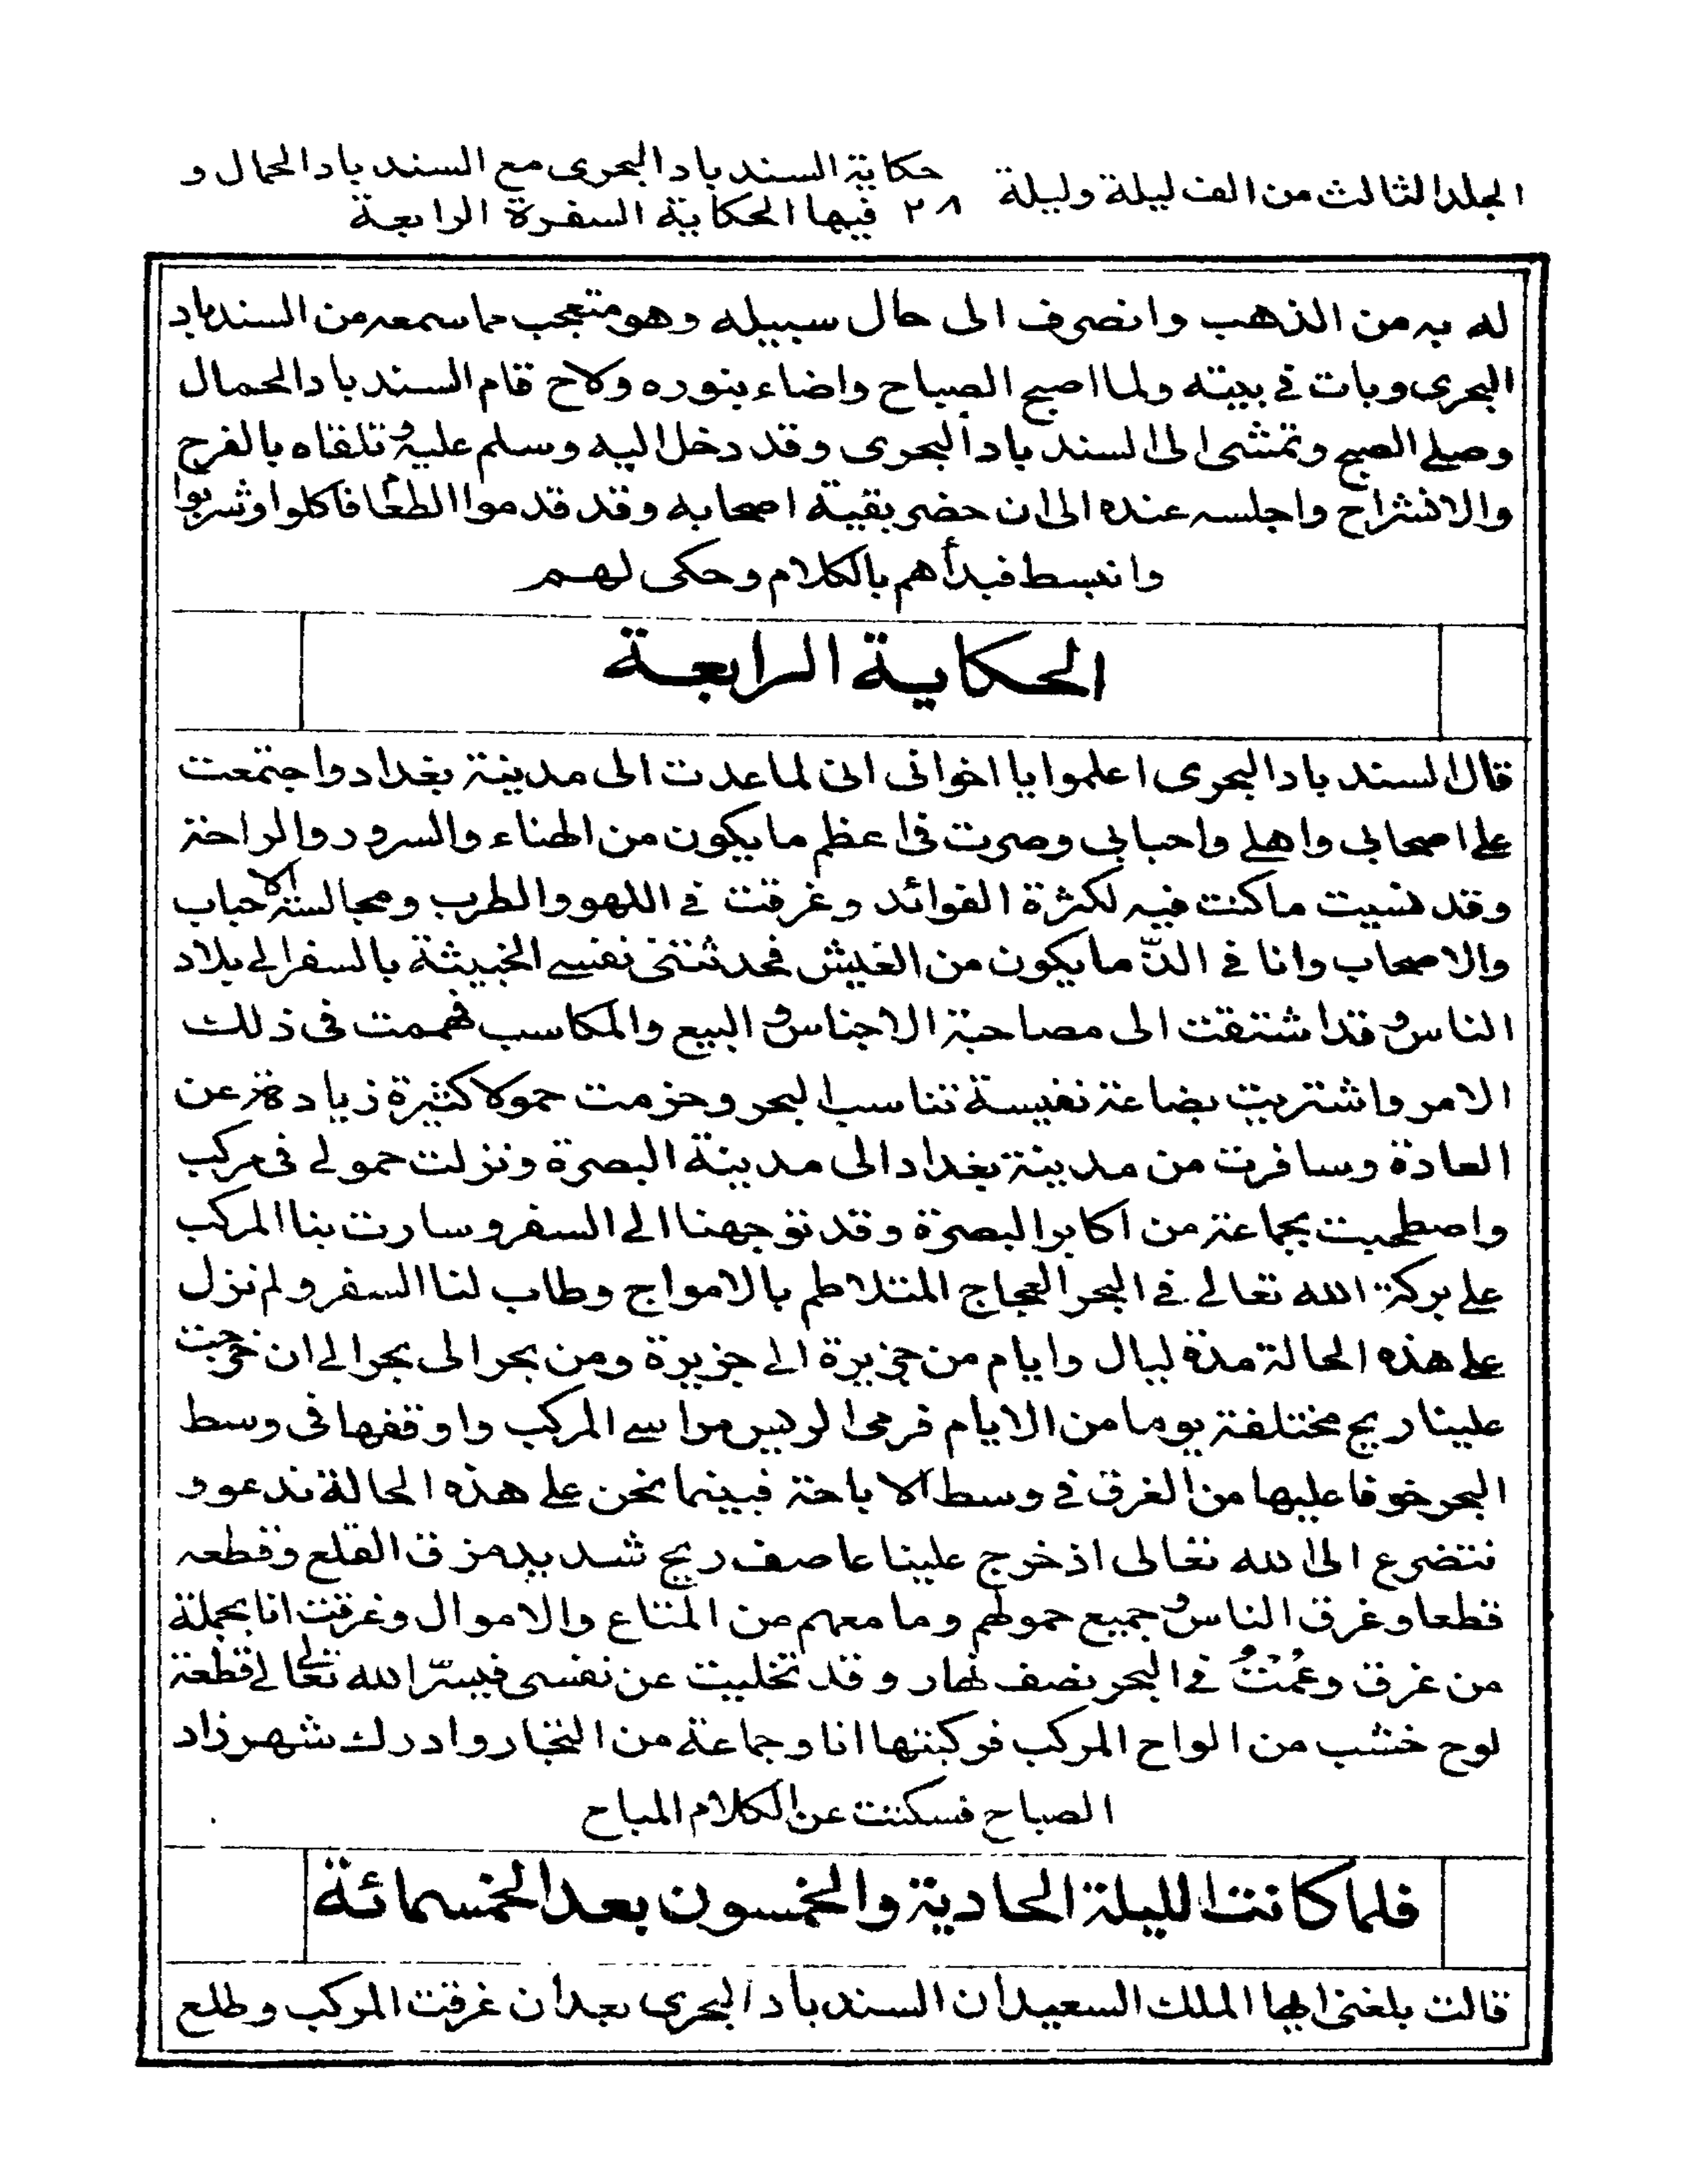 المجلد الثالث من الف ليلة وليلة
٢٨
حكاية السندباد البحرى مع السندباد الحمال و
فيها الحكاية السفرة الرابعة
له به من الذهب وانصرف الى حال سبيله وهو متعجب مما سمعه من السندباد
البحرى وبات فى بيته ولما اصبح الصباح واضاء بنوره ولاح قام السندباد الحمال
وصلى الصبح وتمشى الى السندباد البحرى وقد دخل اليه وسلم عليه و تلقاه بالفرح
والانشراح واجلسه عنده الى ان حضر بقية اصحابه وقد قدموا الطعام فاكلوا وشربوا
وانبسط فبدأهم بالكلام وحكى لهم
الحكاية الرابعة
قال السندباد البحرى اعلموا يا اخوانى انى لما عدت الى مدينة بغداد واجتمعت
على اصحابى واهلى واحبابى وصرت فى اعظم ما يكون من الهناء والسرور والراحة
وقد نسيت ما كنت فيه لكثرة الفوائد وغرقت فى اللهو والطرب ومجالسة الاحباب
والاصحاب وانا فى الذّ ما يكون من العيش فحدثتنى نفسى الخبيثة بالسفر الى بلاد
الناس و قد اشتقت الى مصاحبة الاجناس و البيع والمكاسب فهممت فى ذلك
الامر واشتريت بضاعة نفيسة تناسب البحر وحزمت حمولا كثيرة زيادة عن
العادة وسافرت من مدينة بغداد الى مدينة البصرة ونزلت حمولى فى مركب
واصطحبت بجماعة من اكابر البصرة وقد توجهنا الى السفر وسارت بنا المركب
على بركة الله تعالى فى البحر العجاج المتلاطم بالامواج وطاب لنا السفر ولم نزل
على هذه الحالة مدة ليال وايام من جزيرة الى جزيرة ومن بحر الى بحر الى ان خرجت
علينا ريح مختلفة يوما من الايام فرمى الريس مراسى المركب واوقفها فى وسط
البحر خوفا عليها من الغرق فى وسط الاباحة فبينما نحن على هذه الحالة ندعو و
نتضرع الى الله تعالى اذ خرج علينا عاصف ريح شديد مزق القلع وقطعه
قطعا وغرق الناس و جميع حمولهم وما معهم من المتاع والاموال وغرقت انا بجملة
من غرق وعُمْتُ فى البحر نصف نهار وقد تخليت عن نفسى فيسّر الله تعالى لى قطعة
لوح خشب من الواح المركب فركبتها انا وجماعة من التجار وادرك شهرزاد
الصباح فسكتت عن الكلام المباح
فلما كانت الليلة الحادية والخمسون بعد الخمسمائة
قالت بلغنى ايها الملك السعيد ان السندباد البحرى بعد ان غرقت المركب وطلع